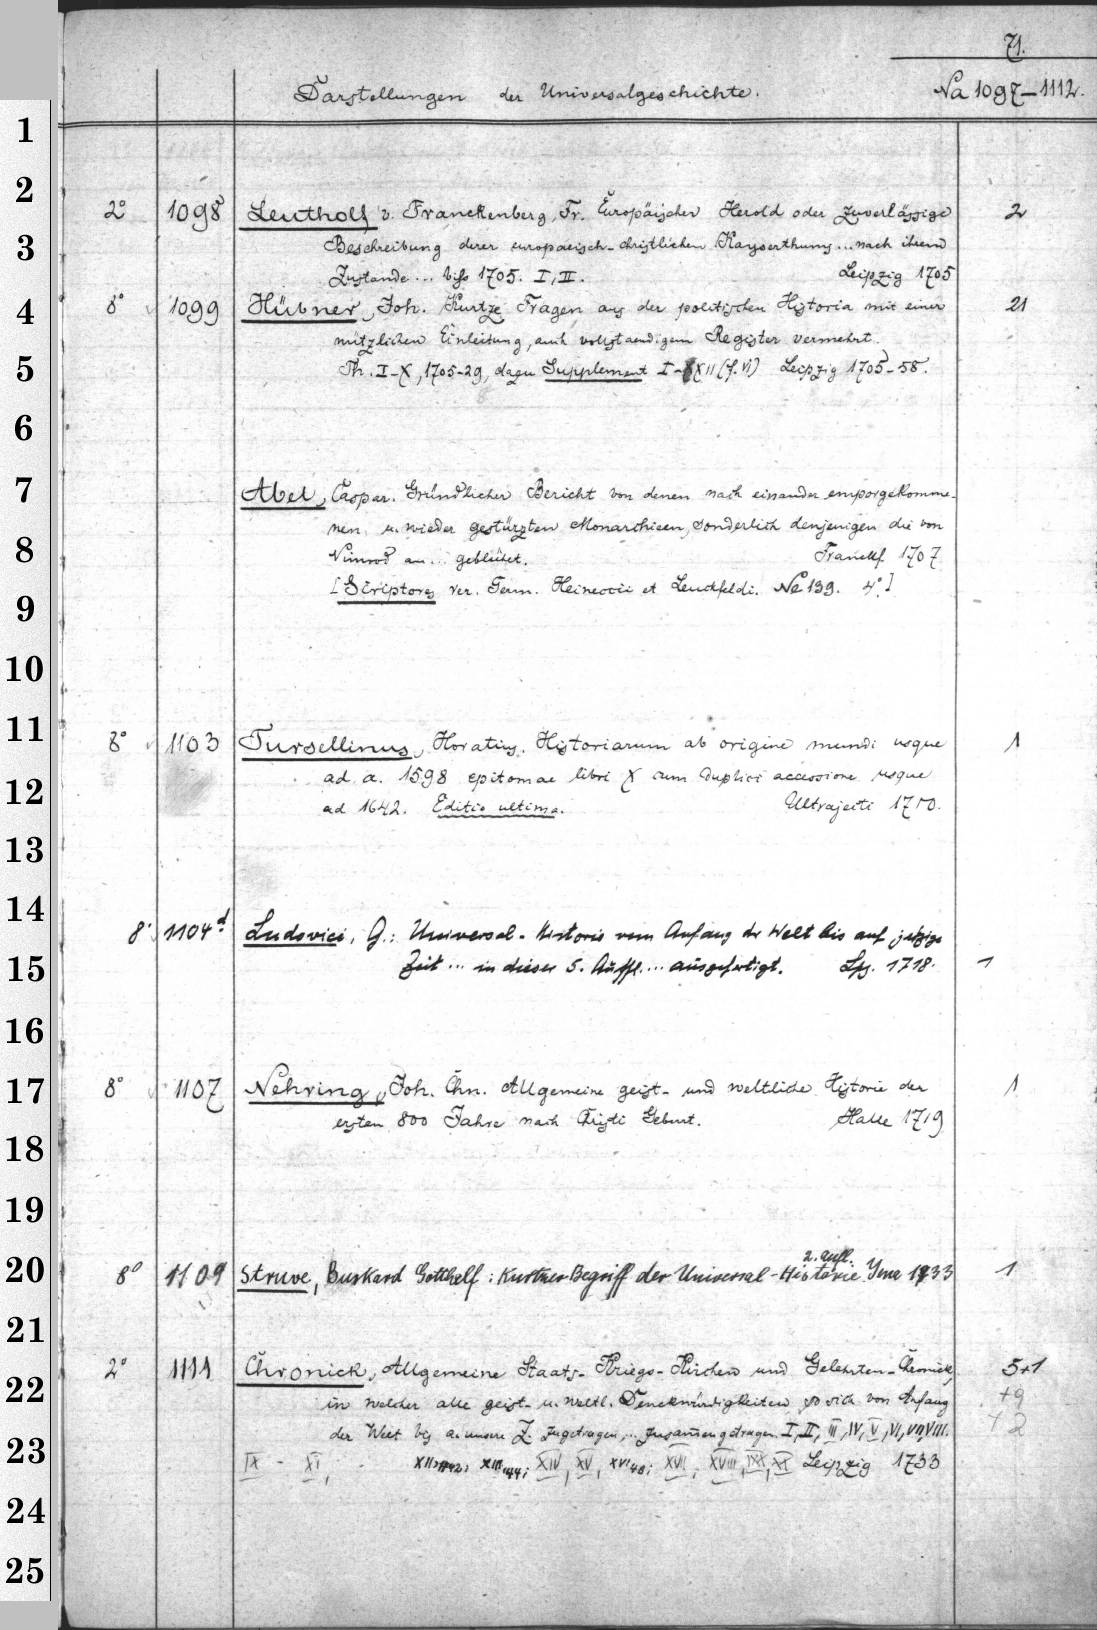 71.
Darstellungen der Universalgeschichte. Na 1097-1112.
1
2
2° 1098 Leutholf v. Franckenberg, Fr. Europäischer Herold oder zuverlässige 2
3
Beschreibung derer europaeisch-christlichen Kayserthums... nach ihrem
Zustande... biss 1705. I, II. Leipzig 1705
4
8° 1099 Hübner, Joh. Kurtze Fragen aus der politischen Historia mit einer 21
nützlichen Einleitung, auch vollstaendigem Register vermehrt.
5
Th. I-X, 1705-29, dazu Supplement I-XII (f. VI) Leipzig 1705-58.
6
7
Abel, Caspar. Gründlicher Bericht von denen nach einander emporgekomme-
nen u. wieder gestürzten Monarchieen, sonderlich denjenigen die von
8
Nimrod an... geblühet. Franckf 1707
[Scriptores rer. Germ. Heineccii et Leuckfeldi. Ne 139. 4°.]
9
10
11
8° 1103 Tursellinus, Horatius. Historiarum ab origine mundi usque 1
12
ad a. 1598 epitomae libri X cum duplici accessione usque
ad 1642. Editio ultima. Ultrajecti 1710.
13
14
8° 1104d Ludovici, G.: Universal-Historie vom Anfang der Welt bis auf jetzige
15
Zeit... in dieser 5. Auffl.... ausgefertigt. Lpz. 1718. 1
16
17
8° 1107 Nehring, Joh. Chn. Allgemeine geist- und weltliche Historie der 1
ersten 800 Jahre nach Christi Geburt. Halle 1719
18
19
2. Aufl.
20
8° 1109 Struve, Burkard Gotthelf: Kurtzer Begriff der Universal-Historie. Jena 1733 1
21
2° 1111 Chronick, Allgemeine Staats- Kriegs- Kirchen und Gelehrten-Chronick, 5+1
22
in welcher alle geist- u. weltl. Denckwürdigkeiten so sich von Anfang +9
der Welt bis a. unsere Z. zugetragen,... zusammengetragen. I, II, III, IV, V, VI, VII, VIII. +2
23
IX - XI, XII, 1742; XIII, 44; XIV, XV, XVI, 48; XVII, XVIII, IXX, XX Leipzig 1733
24
25